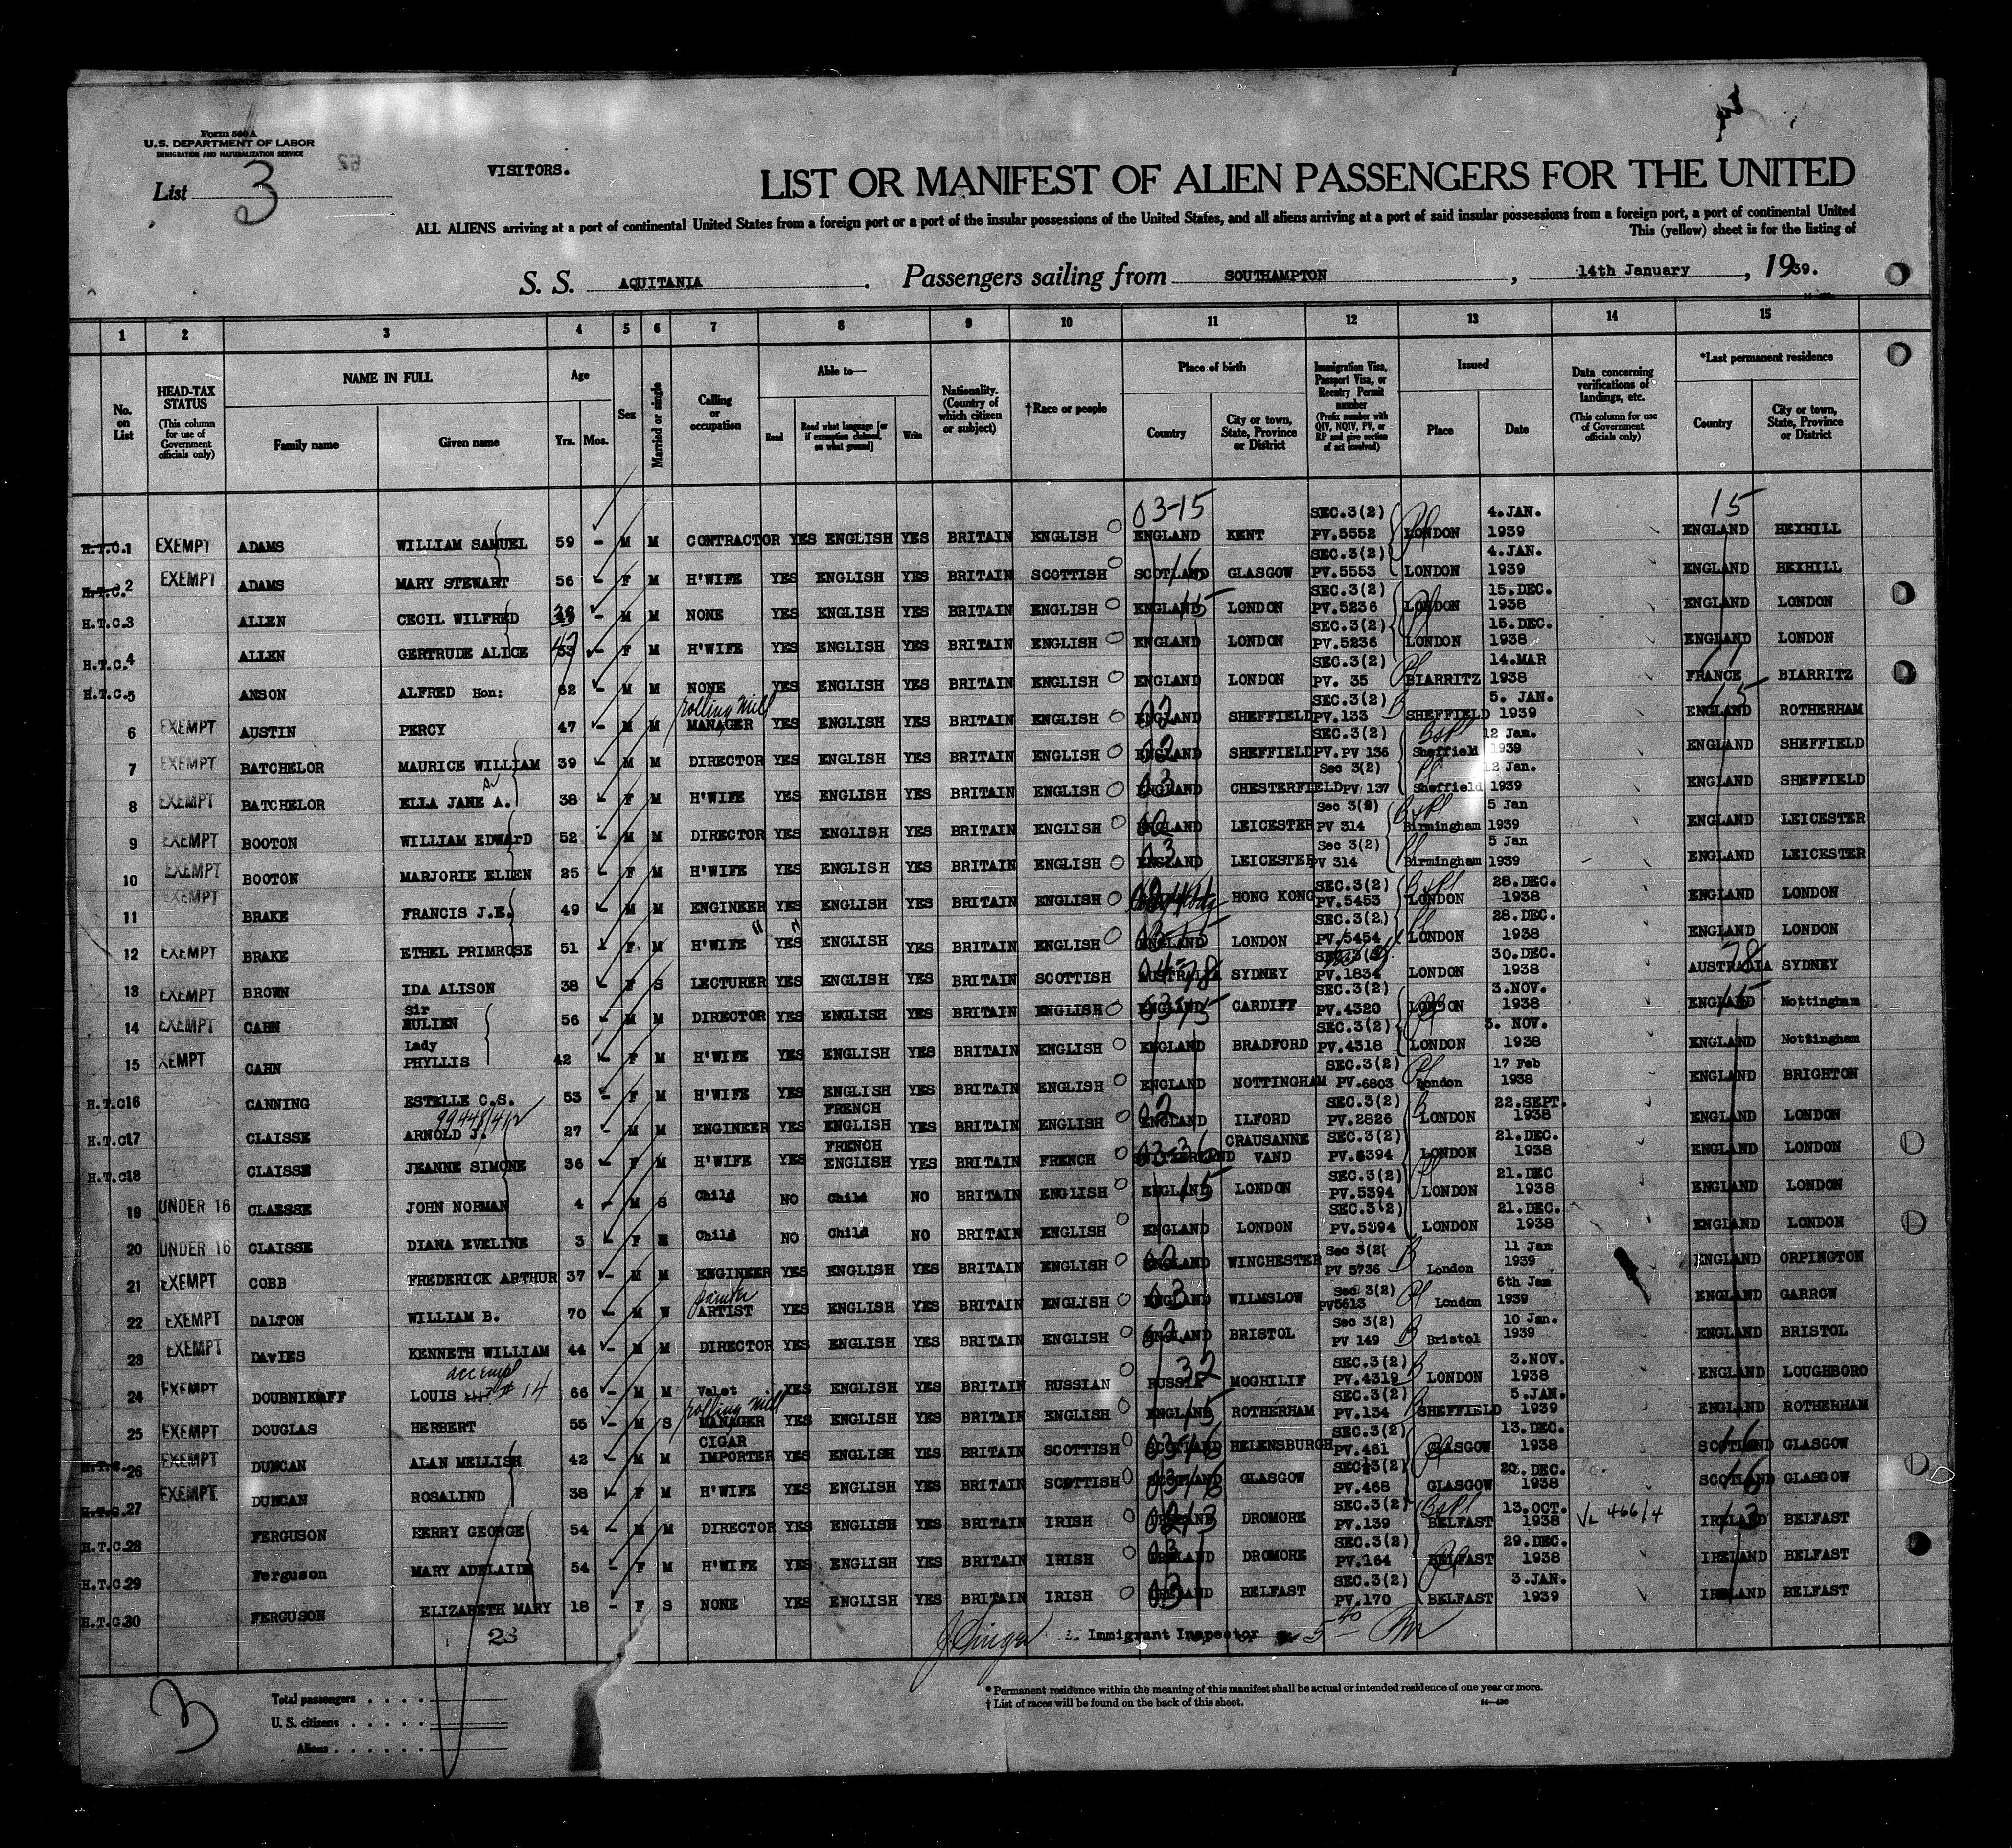 Form 500 A
U.S. DEPARTMENT OF LABOR
IMMIGRATION AND NATURALIZATION SERVICE
VISITORS.
List 3
LIST OR MANIFEST OF ALIEN PASSENGERS FOR THE UNITED
ALL ALIENS arriving at a port of continental United States from a foreign port or a port of the insular possessions of the United States, and all aliens arriving at a port of said insular possessions from a foreign port, a port of continental United
This (yellow) sheet is for the listing of
S. S. AQUITANIA . Passengers sailing from SOUTHAMPTON , 14th January , 1939.
1 2 3 4 5 6 7 8 9 10 11 12 13 14 15
No. on List
HEAD-TAX STATUS (This column for use of Government officials only)
NAME IN FULL
Family name Given name
Age Yrs. Mos.
Sex
Married or single
Calling or occupation
Able to— Read Read what language [or if exemption claimed, on what ground] Write
Nationality. (Country of which citizen or subject)
†Race or people
Place of birth Country City or town, State, Province or District
Immigration Visa, Passport Visa, or Reentry Permit number (Prefix number with QIV, NQIV, PV, or RP and give section of act involved)
Issued Place Date
Data concerning verifications of landings, etc. (This column for use of Government officials only)
*Last permanent residence Country City or town, State, Province or District
03-15 15
H.T.C. 1 EXEMPT ADAMS WILLIAM SAMUEL 59 - M M CONTRACTOR YES ENGLISH YES BRITAIN ENGLISH ENGLAND KENT SEC.3(2) PV.5552 LONDON 4.JAN. 1939 ENGLAND BEXHILL
H.T.C. 2 EXEMPT ADAMS MARY STEWART 56 - F M H'WIFE YES ENGLISH YES BRITAIN SCOTTISH SCOTLAND GLASGOW SEC.3(2) PV.5553 LONDON 4.JAN. 1939 ENGLAND BEXHILL
H.T.C. 3 ALLEN CECIL WILFRED - M M NONE YES ENGLISH YES BRITAIN ENGLISH ENGLAND LONDON SEC.3(2) PV.5236 LONDON 15.DEC. 1938 ENGLAND LONDON
H.T.C. 4 ALLEN GERTRUDE ALICE - F M H'WIFE YES ENGLISH YES BRITAIN ENGLISH ENGLAND LONDON SEC.3(2) PV.5236 LONDON 15.DEC. 1938 ENGLAND LONDON
H.T.C. 5 ANSON ALFRED Hon: 62 - M M NONE YES ENGLISH YES BRITAIN ENGLISH ENGLAND LONDON SEC.3(2) PV. 35 BIARRITZ 14.MAR 1938 FRANCE BIARRITZ
6 EXEMPT AUSTIN PERCY 47 - M M rolling mill MANAGER YES ENGLISH YES BRITAIN ENGLISH ENGLAND SHEFFIELD SEC.3(2) PV.133 SHEFFIELD 5. JAN. 1939 ENGLAND ROTHERHAM
7 EXEMPT BATCHELOR MAURICE WILLIAM 39 M M DIRECTOR YES ENGLISH YES BRITAIN ENGLISH ENGLAND SHEFFIELD SEC.3(2) PV. PV 136 Sheffield 12 Jan. 1939 ENGLAND SHEFFIELD
8 EXEMPT BATCHELOR ELLA JANE A. 38 F M H'WIFE YES ENGLISH YES BRITAIN ENGLISH ENGLAND CHESTERFIELD Sec 3(2) PV 137 Sheffield 12 Jan. 1939 ENGLAND SHEFFIELD
9 EXEMPT BOOTON WILLIAM EDWARD 52 M M DIRECTOR YES ENGLISH YES BRITAIN ENGLISH ENGLAND LEICESTER Sec 3(2) PV 314 Birmingham 5 Jan 1939 ENGLAND LEICESTER
10 EXEMPT BOOTON MARJORIE ELLEN 25 F M H'WIFE YES ENGLISH YES BRITAIN ENGLISH ENGLAND LEICESTER Sec 3(2) PV 314 Birmingham 5 Jan 1939 ENGLAND LEICESTER
11 EXEMPT BRAKE FRANCIS J.E. 49 M M ENGINEER YES ENGLISH YES BRITAIN ENGLISH HONG KONG SEC.3(2) PV.5453 LONDON 28.DEC. 1938 ENGLAND LONDON
12 EXEMPT BRAKE ETHEL PRIMROSE 51 F M H'WIFE YES ENGLISH YES BRITAIN ENGLISH ENGLAND LONDON SEC.3(2) PV.5454 LONDON 28.DEC. 1938 ENGLAND LONDON
13 EXEMPT BROWN IDA ALISON 38 F S LECTURER YES ENGLISH YES BRITAIN SCOTTISH AUSTRALIA SYDNEY PV.1834 LONDON 30.DEC. 1938 AUSTRALIA SYDNEY
14 EXEMPT CAHN Sir HULIEN 56 M M DIRECTOR YES ENGLISH YES BRITAIN ENGLISH ENGLAND CARDIFF SEC.3(2) PV.4320 LONDON 3.NOV. 1938 ENGLAND Nottingham
15 EXEMPT CAHN Lady PHYLLIS 42 F M H'WIFE YES ENGLISH YES BRITAIN ENGLISH ENGLAND BRADFORD SEC.3(2) PV.4318 LONDON 3. NOV. 1938 ENGLAND Nottingham
H.T.C. 16 CANNING ESTELLE C.S. 53 - F M H'WIFE YES ENGLISH YES BRITAIN ENGLISH ENGLAND NOTTINGHAM SEC.3(2) PV.6803 London 17 Feb 1938 ENGLAND BRIGHTON
H.T.C. 17 CLAISSE ARNOLD J. 27 - M M ENGINEER YES FRENCH ENGLISH YES BRITAIN ENGLISH ENGLAND ILFORD SEC.3(2) PV.2826 LONDON 22.SEPT. 1938 ENGLAND LONDON
H.T.C. 18 CLAISSE JEANNE SIMONE 36 F M H'WIFE YES FRENCH ENGLISH YES BRITAIN FRENCH SWITZERLAND CRAUSANNE VAND SEC.3(2) PV.5394 LONDON 21.DEC. 1938 ENGLAND LONDON
19 UNDER 16 CLAISSE JOHN NORMAN 4 - M S Child NO Child NO BRITAIN ENGLISH ENGLAND LONDON SEC.3(2) PV.5394 LONDON 21.DEC 1938 ENGLAND LONDON
20 UNDER 16 CLAISSE DIANA EVELINE 3 F Child NO Child NO BRITAIN ENGLISH ENGLAND LONDON SEC.3(2) PV.5394 LONDON 21.DEC. 1938 ENGLAND LONDON
21 EXEMPT COBB FREDERICK ARTHUR 37 - M M ENGINEER YES ENGLISH YES BRITAIN ENGLISH ENGLAND WINCHESTER Sec 3(2( PV 5736 London 11 Jan 1939 ENGLAND ORPINGTON
22 EXEMPT DALTON WILLIAM B. 70 - M W ARTIST YES ENGLISH YES BRITAIN ENGLISH ENGLAND WILMSLOW Sec 3(2) PV5613 London 6th Jan 1939 ENGLAND GARROW
23 EXEMPT DAVIES KENNETH WILLIAM 44 - M M DIRECTOR YES ENGLISH YES BRITAIN ENGLISH ENGLAND BRISTOL Sec 3(2) PV 149 Bristol 10 Jan. 1939 ENGLAND BRISTOL
24 EXEMPT DOUBNIKOFF LOUIS 14 66 - M M Valet YES ENGLISH YES BRITAIN RUSSIAN RUSSIA MOGHILIF SEC.3(2) PV.4319 LONDON 3.NOV. 1938 ENGLAND LOUGHBORO
25 EXEMPT DOUGLAS HERBERT 55 - M S rolling mill MANAGER YES ENGLISH YES BRITAIN ENGLISH ENGLAND ROTHERHAM SEC.3(2) PV.134 SHEFFIELD 5.JAN. 1939 ENGLAND ROTHERHAM
H.T.C. 26 EXEMPT DUNCAN ALAN MELLISH 42 - M M CIGAR IMPORTER YES ENGLISH YES BRITAIN SCOTTISH SCOTLAND HELENSBURGH SEC.3(2) PV.461 GLASGOW 13.DEC. 1938 SCOTLAND GLASGOW
H.T.C. 27 EXEMPT DUNCAN ROSALIND 38 F M H'WIFE YES ENGLISH YES BRITAIN SCOTTISH SCOTLAND GLASGOW SEC.3(2) PV.468 GLASGOW 20.DEC. 1938 SCOTLAND GLASGOW
H.T.C. 28 FERGUSON GEORGE 54 - M M DIRECTOR YES ENGLISH YES BRITAIN IRISH IRELAND DROMORE SEC.3(2) PV.139 BELFAST 13.OCT. 1938 VL 466/4 IRELAND BELFAST
H.T.C. 29 Ferguson MARY ADELAIDE 54 - F M H'WIFE YES ENGLISH YES BRITAIN IRISH IRELAND DROMORE SEC.3(2) PV.164 BELFAST 29.DEC. 1938 IRELAND BELFAST
H.T.C. 30 FERGUSON ELIZABETH MARY 18 - F S NONE YES ENGLISH YES BRITAIN IRISH IRELAND BELFAST SEC.3(2) PV.170 BELFAST 3.JAN. 1939 IRELAND BELFAST
23 Immigrant Inspector
* Permanent residence within the meaning of this manifest shall be actual or intended residence of one year or more.
† List of races will be found on the back of this sheet. 14—430
3
Total passengers . . . .
U. S. citizens . . . . .
Aliens . . . . . .